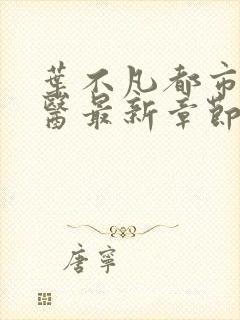 葉不凡都市
醫最新章節
唐寧